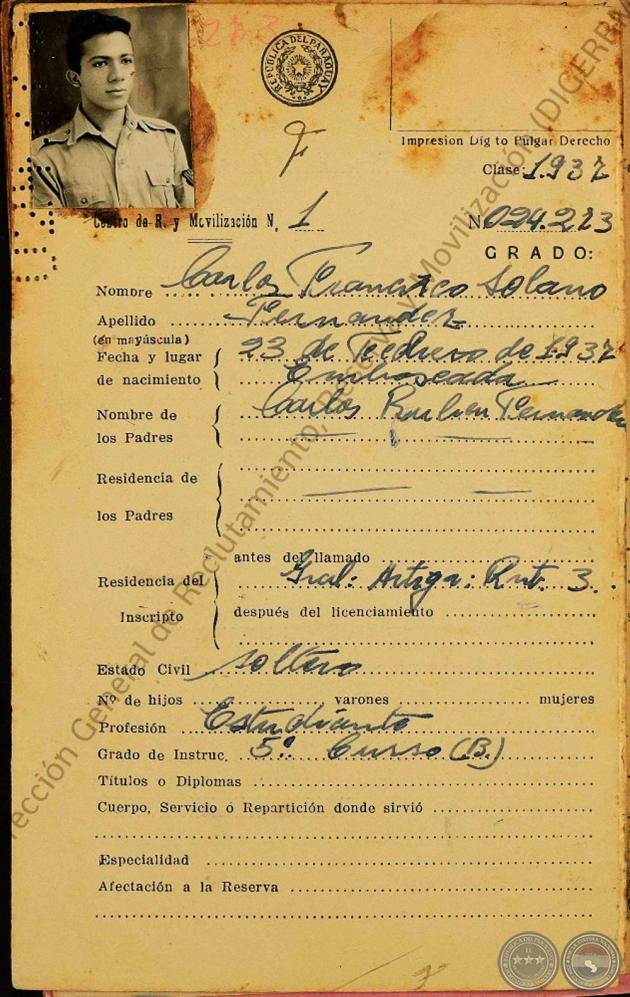 REPUBLICA DEL PARAGUAY
F
Impresion Dig to Pulgar Derecho
Clase: 1.937
Centro de R. y Movilización N. 1
N 024.213
GRADO:
Nombre Carlos Francisco Solano
Apellido Fernandez
(en mayúscula)
Fecha y lugar 23 de Febrero de 1.937
de nacimiento Emboscada
Nombre de Carlos Ruben Fernandez
los Padres
Residencia de
los Padres
antes del llamado
Residencia del Gral. Artiga: 3.
Inscripto después del licenciamiento
Estado Civil soltero
Nº de hijos varones mujeres
Profesión Estudiante
Grado de Instruc. 5º Curso (B.)
Títulos o Diplomas
Cuerpo, Servicio ó Repartición donde sirvió
Especialidad
Afectación a la Reserva
rección General de Reclutamiento, Reserva y Movilización (DIGERR